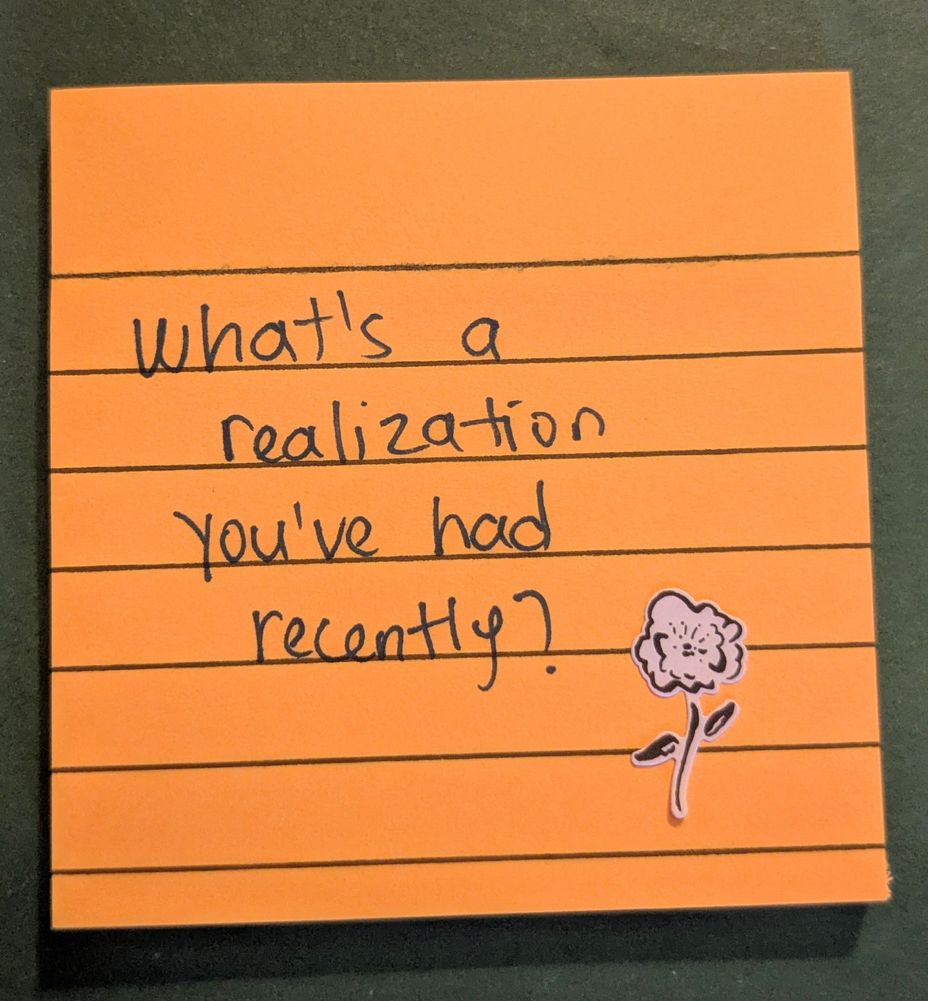 What's a
realization
you've had
recently?